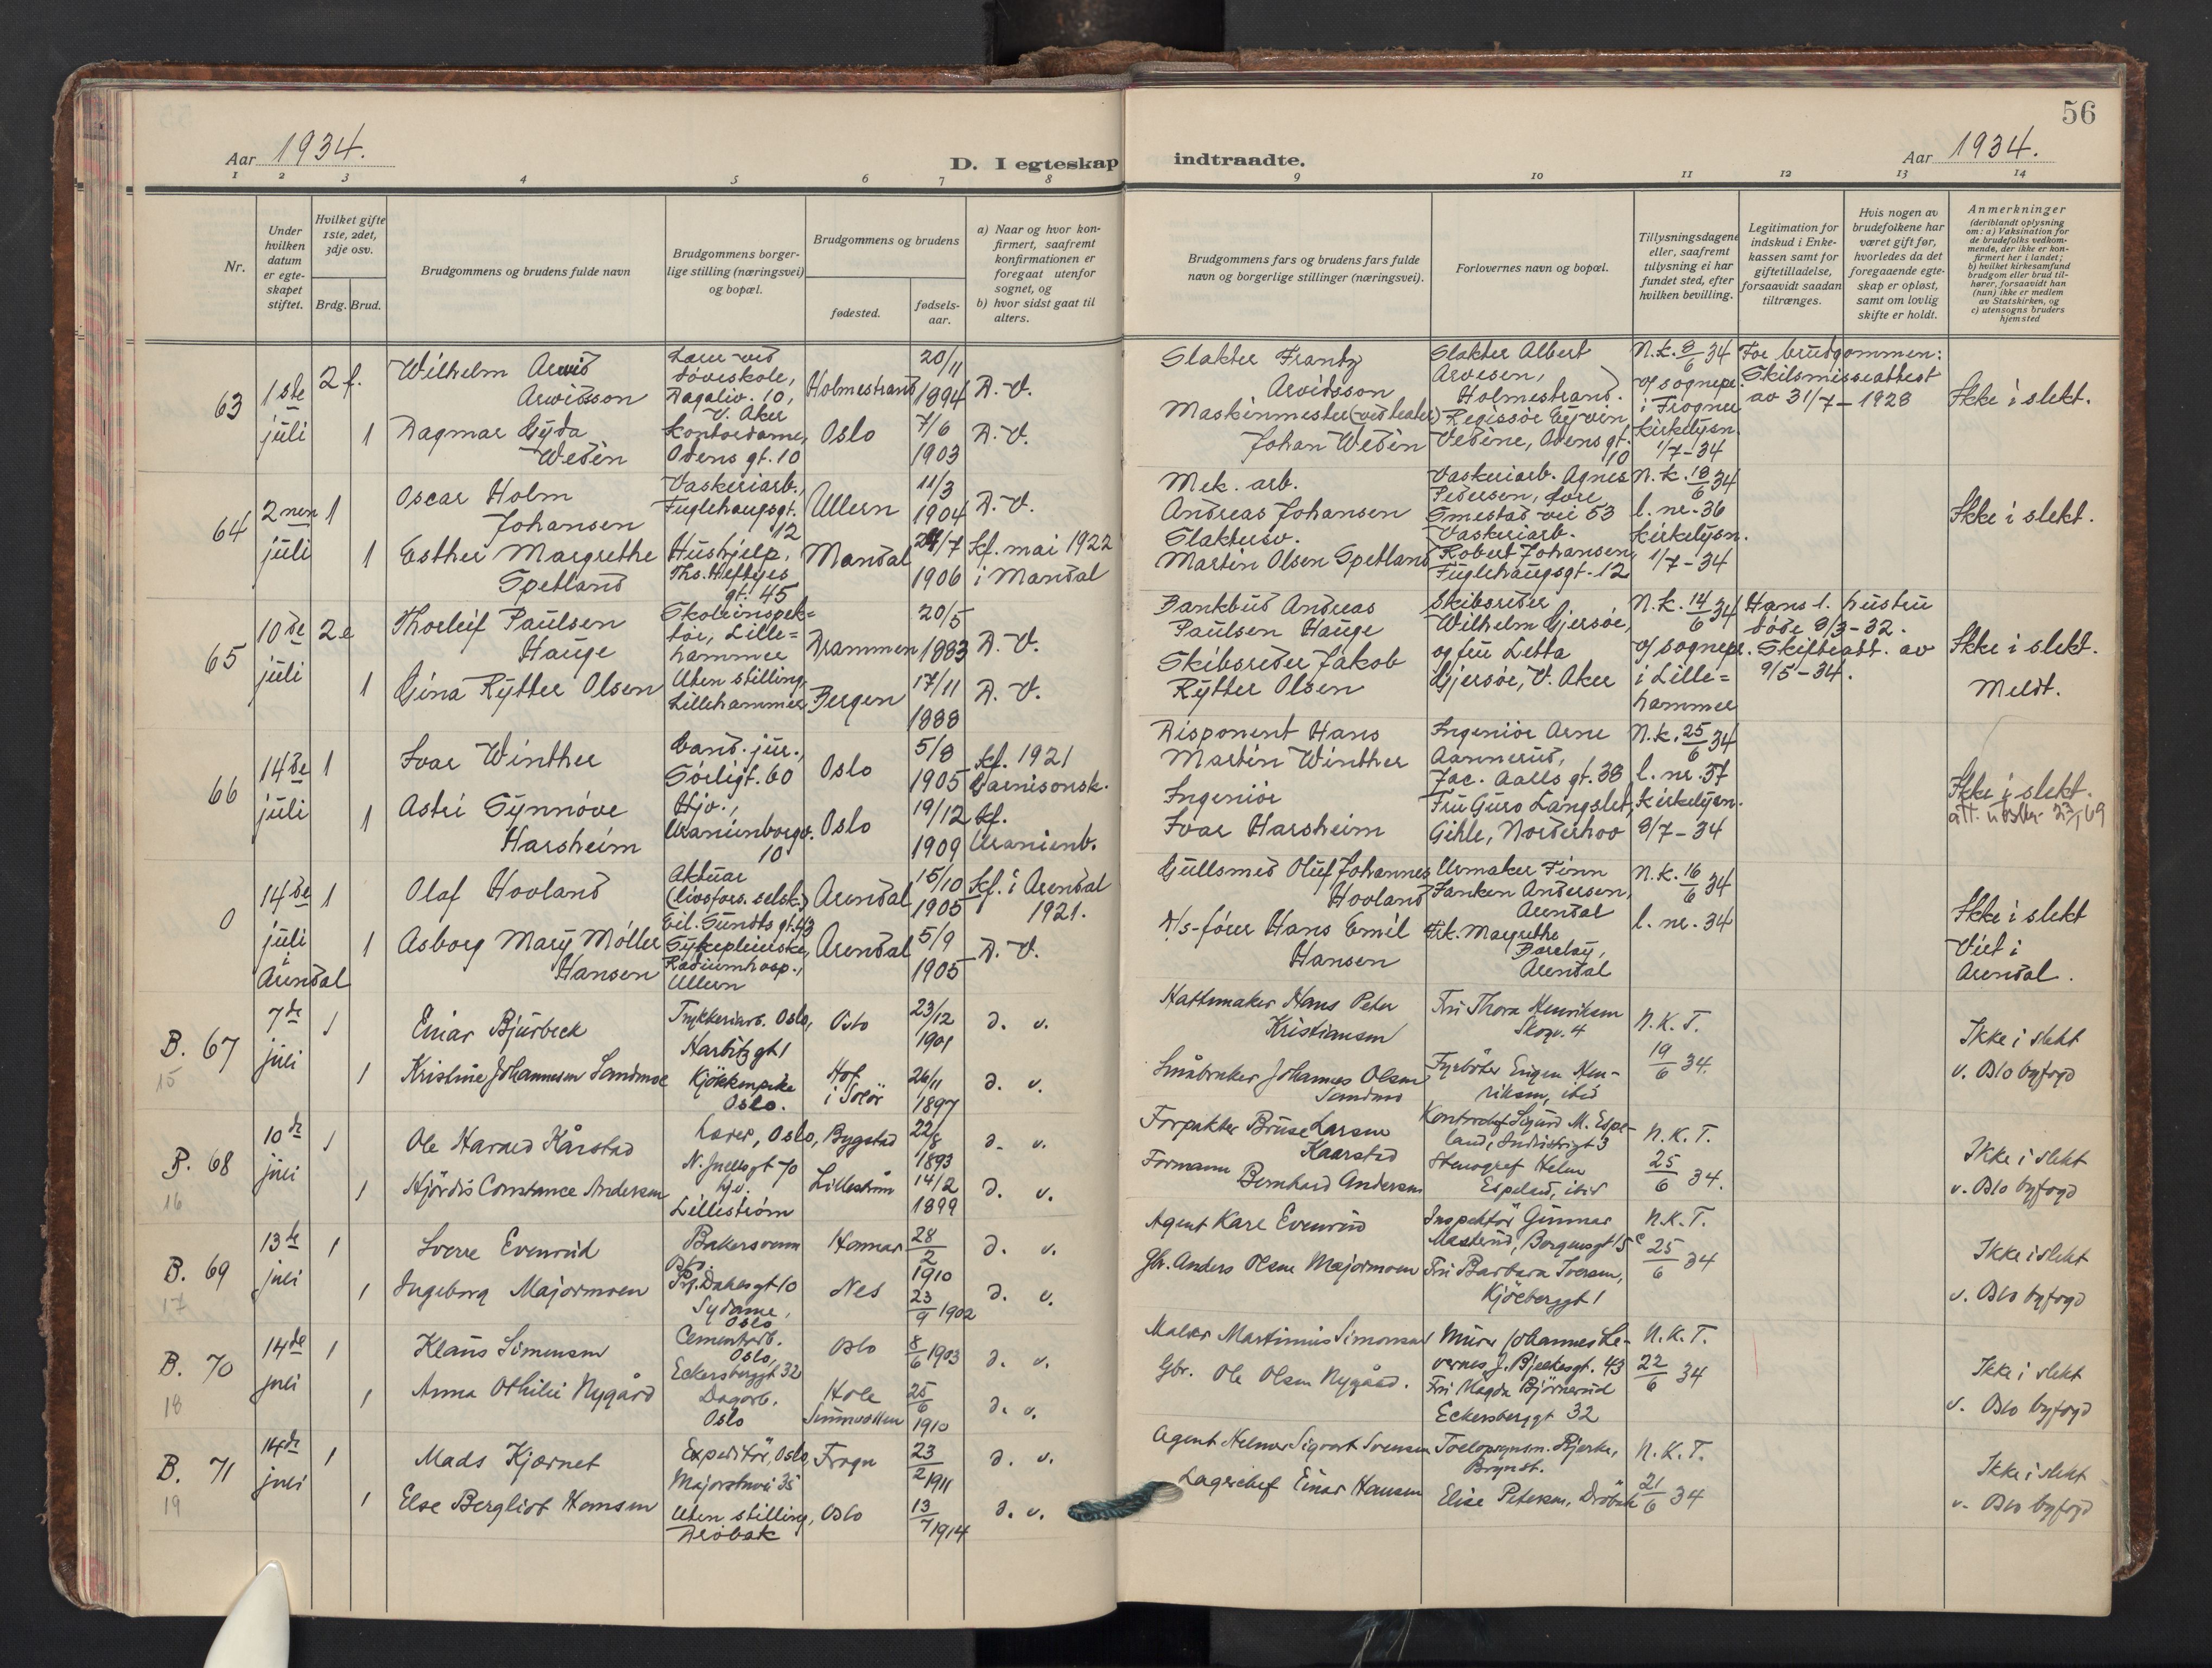 56
Aar 1934.
D. I egteskap indtraadte.
Aar 1934.
1 2 3 4 5 6 7 8 9 10 11 12 13 14
Nr.
Under hvilken datum er egte-skapet stiftet.
Hvilket gifte 1ste, 2det, 3dje osv.
Brdg. Brud.
Brudgommens og brudens fulde navn
Brudgommens borger-lige stilling (næringsvei) og bopæl.
Brudgommens og brudens
fødested.
fødsels-aar.
a) Naar og hvor kon-firmert, saafremt konfirmationen er foregaat utenfor sognet, og
b) hvor sidst gaat til alters.
Brudgommens fars og brudens fars fulde navn og borgerlige stillinger (næringsvei).
Forlovernes navn og bopæl.
Tillysningsdagene eller, saafremt tillysning ei har fundet sted, efter hvilken bevilling.
Legitimation for indskud i Enke-kassen samt for giftetilladelse, forsaavidt saadan tiltrænges.
Hvis nogen av brudefolkene har været gift før, hvorledes da det foregaaende egte-skap er opløst, samt om lovlig skifte er holdt.
Anmerkninger
(deriblandt oplysning om: a) Vaksination for de brudefolks vedkom-mende, der ikke er kon-firmert her i landet; b) hvilket kirkesamfund brudgom eller brud til-hører, forsaavidt han (hun) ikke er medlem av Statskirken, og c) utensogns bruders hjemsted
63
1ste juli
2 f.
Wilhelm Arvid Arvidsson
Lærer ved døveskole, Dagaliv. 10, V. Aker
Holmestrand
20/11 1894
D. V.
Slakter Frantz Arvidsson
Slakter Albert Arvesen, Holmestrand.
N.k. 8/6 34
For brudgommen: Skilsmisseattest av 31/7-1928
Ikke i slekt.
1
Dagmar Gyda Wedin
Kontordame, Odens gt. 10
Oslo
7/6 1903
D. V.
Maskinmester (ved teater) Johan Wedin
Regissør Eyvin Vedine, Odens gt. 10
av sognepr. i Frogner Kirkelysn. 1/7-34
64
2nen juli
1
Oscar Holm Johansen
Vaskeriarb., Fuglehaugsgt. 12
Ullern
11/3 1904
D. V.
Mek. arb. Andreas Johansen
Vaskeriarb. Agnes Pedersen, Smestad vei 53
N.k. 18/6 34
l. nr. 36
Ikke i slekt.
1
Esther Margrethe Spetland
Hushjelp, Ths. Heftyes gt. 45
Mandal
24/7 1906
Kf. mai 1922 i Mandal
Slaktersv. Martin Olsen Spetland
Vaskeriarb. Robert Johansen, Fuglehaugsgt. 12
Kirkelysn. 1/7-34
65
10de juli
2 e
Thorleif Paulsen Hauge
Skoleinspek=tør, Lille=hammer
Drammen
20/5 1883
D. V.
Bankbud Andreas Paulsen Hauge
Skibsreder Wilhelm Gjersøe,
N.k. 14/6 34
Hans 1. hustru døde 8/3-32. Skifteatt. av 9/5-34.
Ikke i slekt.
1
Gina Rytter Olsen
Uten stilling, Lillehammer
Bergen
17/11 1888
D. V.
Skibsreder Jakob Rytter Olsen
og fru Letta Gjersøe, V. Aker
av sognepr. i Lille=hammer
Meldt.
66
14de juli
1
Ivar Winther
Cand. jur., Sørligt. 60
Oslo
5/8 1905
Kf. 1921 Garnisonsk.
Disponent Hans Martin Winther
Ingeniør Arne Aannerud, Jac. Aalls gt. 38
N.k. 25/6 34
l. nr. 37
Ikke i slekt.
1
Astri Synnøve Harsheim
Hjv., Uranienborgv. 10
Oslo
19/12 1909
Kf. Uranienb.
Ingeniør Ivar Harsheim
Fru Guro Langslet, Gihle, Norderhov
Kirkelysn. 8/7-34
0
14de juli i Arendal
1
Olaf Hovland
Aktuar (livsfors. selsk.) Eil. Sundts gt. 43
Arendal
15/10 1905
Kf. i Arendal 1921.
Gullsmed Oluf Johannes Hovland
Urmaker Finn Fanken Andersen, Arendal
N.k. 16/6 34
l. nr. 34
Ikke i slekt
Viet i Arendal.
1
Asborg Mary Møller Hansen
Sykepleierske, Radiumhosp., Ullern
Arendal
5/9 1905
D. V.
D/s-fører Hans Emil Hansen
Frk. Margrethe Barclay, Arendal
B. 67
15
7de juli
1
Einar Bjurbeck
Trykkeriarb. Oslo, Harbitzgt 1
Oslo
23/12 1901
d. v.
Hattemaker Hans Peter Kristiansen
Fru Thora Henriksen Skogv. 4
N.K.T. 19/6 34.
Ikke i slekt
v. Oslo byfogd
1
Kristine Johannesen Sandmoe
Kjøkkenpike Oslo.
Hof i Solør
26/11 1897
d. v.
Småbruker Johannes Olsen Sandmo
Fyrbøter Eugen Hen-riksen, ibid
B. 68
16
10de juli
1
Ole Harald Kårstad
Lærer, Oslo, N. Juelsgt 70
Bygstad
22/8 1893
d. v.
Forpakter Bruse Larsen Kaarstad
Kontorchef Sigurd M. Espe-land, Industrigt 3
N.K.T. 25/6 34.
Ikke i slekt
v. Oslo byfogd
1
Hjørdis Constance Andersen
hjv. Lillestrøm
Lillestrøm
14/2 1899
d. v.
Formann Bernhard Andersen
Stenograf Helen Espeland, ibid
B. 69
17
13de juli
1
Sverre Evenrud
Bakersvenn Oslo. Prf. Dahlsgt 10
Hamar
28/2 1910
d. v.
Agent Kare Evenrud
Inspektør Gunnar Masterud, Borgensgt 15c
N.K.T. 25/6 34
Ikke i slekt
v. Oslo byfogd
1
Ingeborg Majormoen
Sydame, Oslo
Nes
23/9 1902
d. v.
Gbr. Anders Olsen Majormoen
Fru Barbara Iversen, Kjöeberggt 1
B. 70
18
14de juli
1
Klaus Simensen
Cementarb. Oslo, Eckersberggt 32
Oslo
8/6 1903
d. v.
Maler Martinius Simonsen
Murer Johannes Le-vernes, J. Bjerkesgt. 43
N.K.T. 22/6 34
Ikke i slekt
v. Oslo byfogd
1
Anna Othilie Nygård
Dagarb. Oslo
Hole
25/6 1910
d. v.
Gbr. Ole Olsen Nygaard.
Fru Magda Bjørnerud Eckersberggt 32
B. 71
19
14de juli
1
Mads Kjærnet
Expeditør, Oslo, Majorstuvei 35
Frogn
23/2 1911
d. v.
Agent Helmer Sigvart Svensen
N.K.T. 21/6 34
Ikke i slekt
v. Oslo byfogd
1
Else Bergliot Hansen
Uten stilling, Drøbak
Oslo
13/7 1914
d. v.
Lagerchef Einar Hansen
Elise Petersen, Drøbak